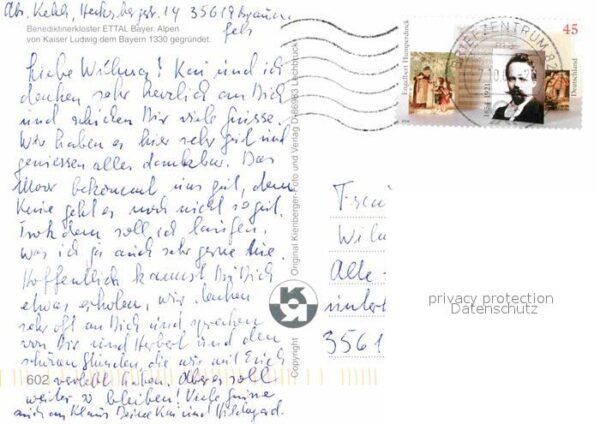 Abs. Kehl, 14 35619 Braun-
fels
Benediktinerkloster ETTAL Bayer. Alpen
von Kaiser Ludwig dem Bayern 1330 gegründet.
Liebe Wilma! Kai und ich
denken sehr herzlich an Dich
und schicken Dir viele Grüsse.
Wir haben es hier sehr gut und
geniessen alles dankbar. Das
Moor bekommt uns gut, dem
Knie geht es noch nicht so gut.
Trotzdem soll ich laufen,
was ich ja auch sehr gerne tue.
Hoffentlich kannst Du Dich
etwas erholen, wir denken
sehr oft an Dich und sprechen
von Dir und Herbert und den
schönen Stunden, die wir mit Euch
602 verlebt haben. Aber es soll
weiter so bleiben! Viele Grüsse
auch an Klaus Deine Kai und Hildegard.
Copyright Original Kienberger-Foto und Verlag
Engelbert Humperdinck
1854-1921
45
Deutschland
BRIEFZENTRUM 82
Frau
Wil
Alte-
unter
3561
privacy protection
Datenschutz